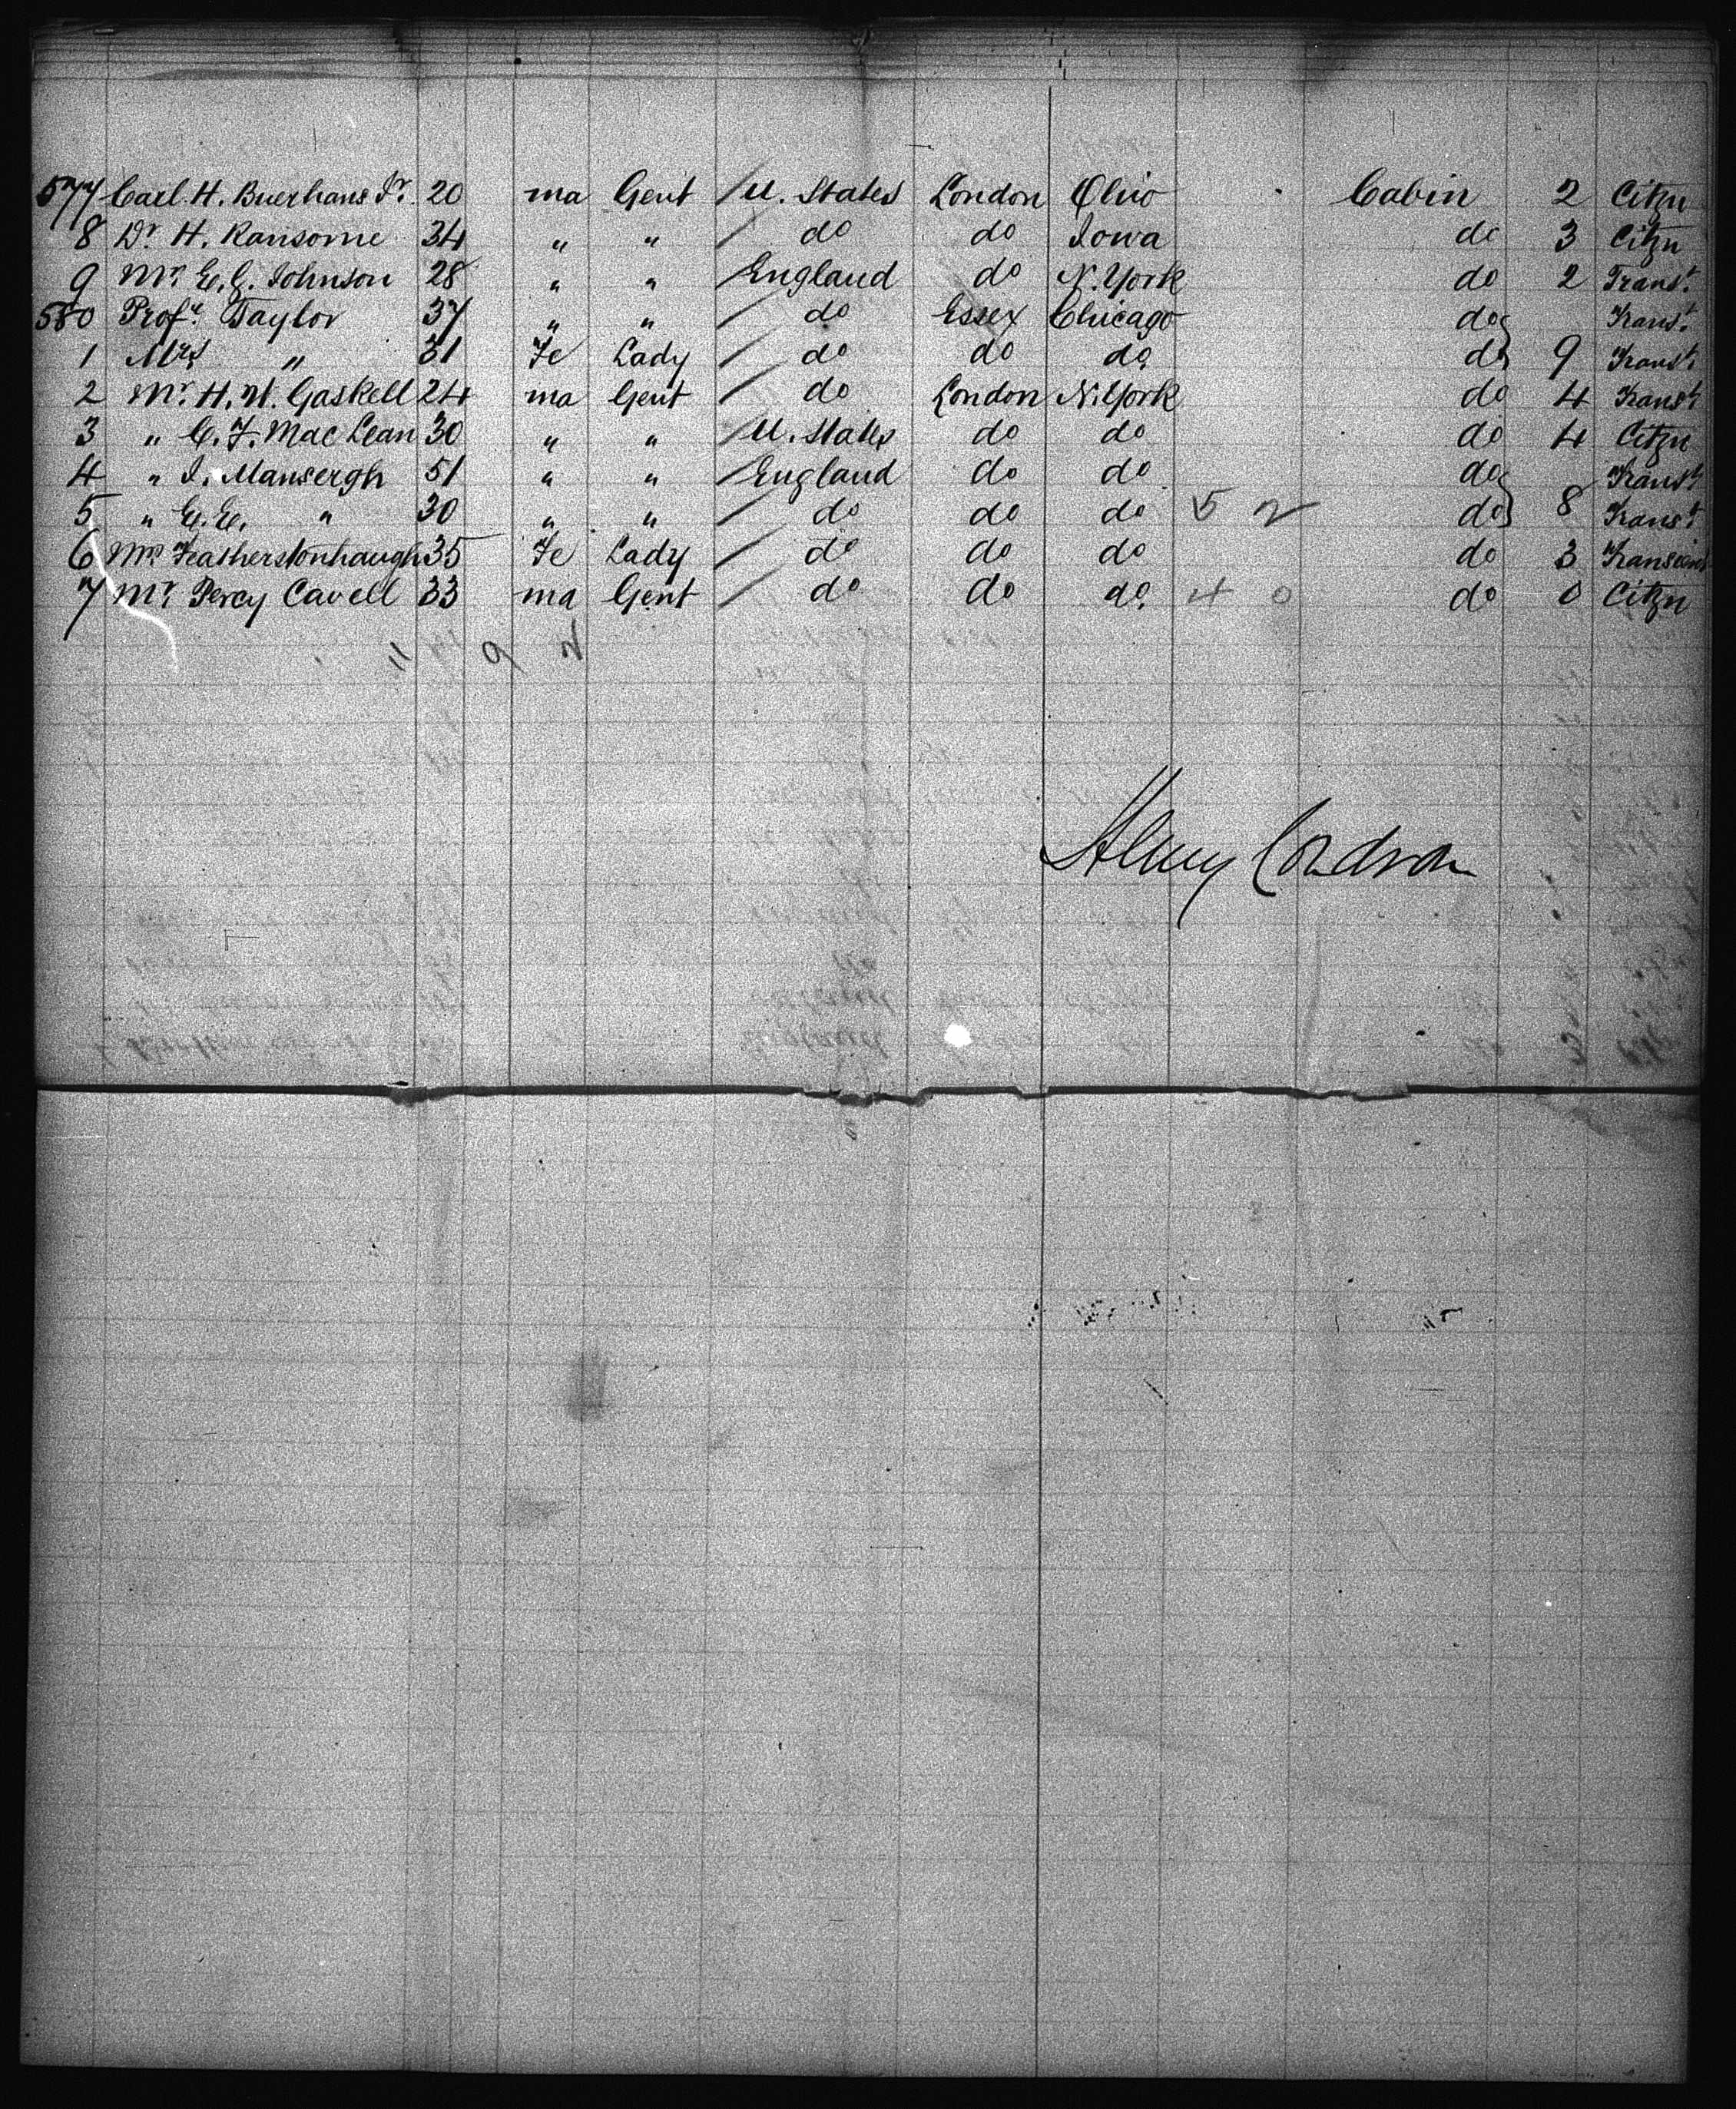 577 Carl. H. Buerhans Jr. 20 ma Gent / U. States London Ohio Cabin 2 Citzn
8 Dr H. Ransome 34 " " / do do Iowa do 3 Citzn
9 Mr. E. G. Johnson 28 " " / England do N. York do 2 Transt.
580 Profr. Taylor 37 " " / do Essex Chicago do } Transt.
1 Mrs " 31 Fe Lady / do do do do } 9 Transt.
2 Mr. H. W. Gaskell 24 ma Gent / do London N. York do 4 Transt
3 " C. F. Mac Lean 30 " " / U. States do do do 4 Citzn
4 " J. Mansergh 51 " " / England do do do } Transt
5 " E. E. " 30 " " / do do do 5 2 do } 8 Transt
6 Mrs Featherstonhaugh 35 Fe Lady / do do do do 3 Transient
7 Mr. Percy Cavell 33 ma Gent / do do do 4 0 do 0 Citzn
11 9 2